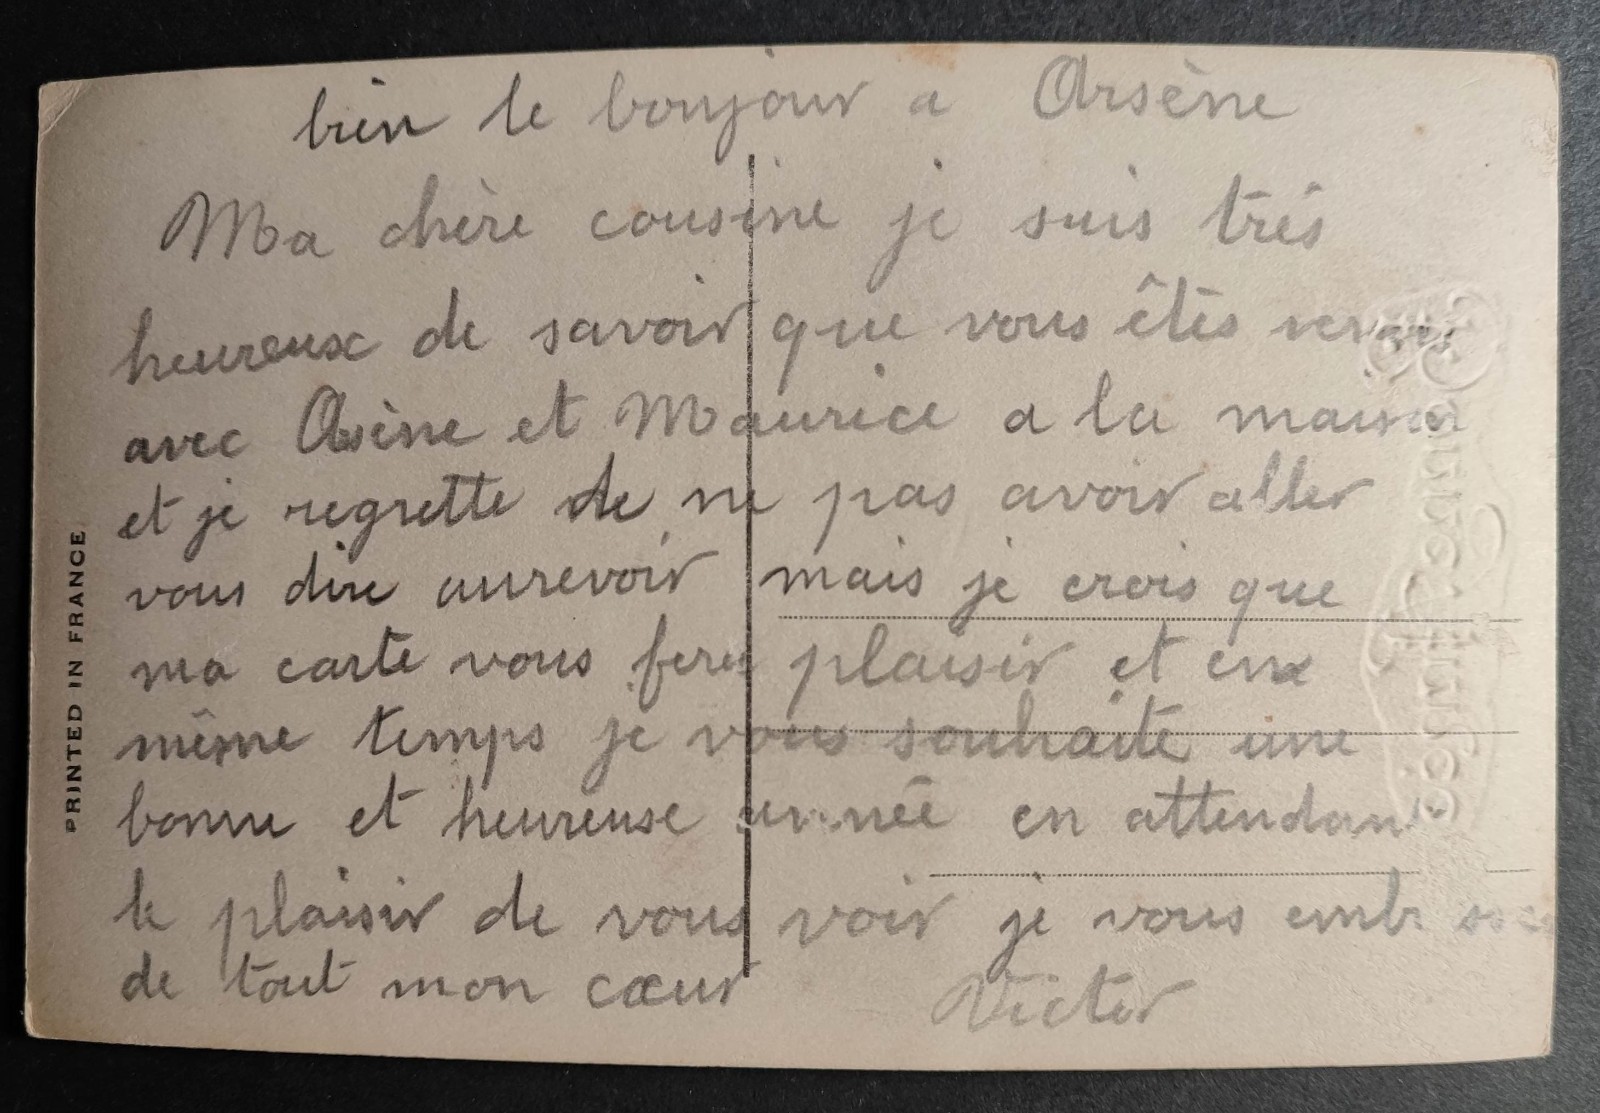 bien le bonjour a Arsène
Ma chère cousine je suis très
heureux de savoir que vous êtès venus
avec Arsène et Maurice a la maison
et je regrette de ne pas avoir aller
vous dire aurevoir mais je crois que
ma carte vous fera plaisir et en
même temps je vous souhaite une
bonne et heureuse année en attendant
le plaisir de vous voir je vous embrasse
de tout mon cœur Victor
PRINTED IN FRANCE
Bonne Année